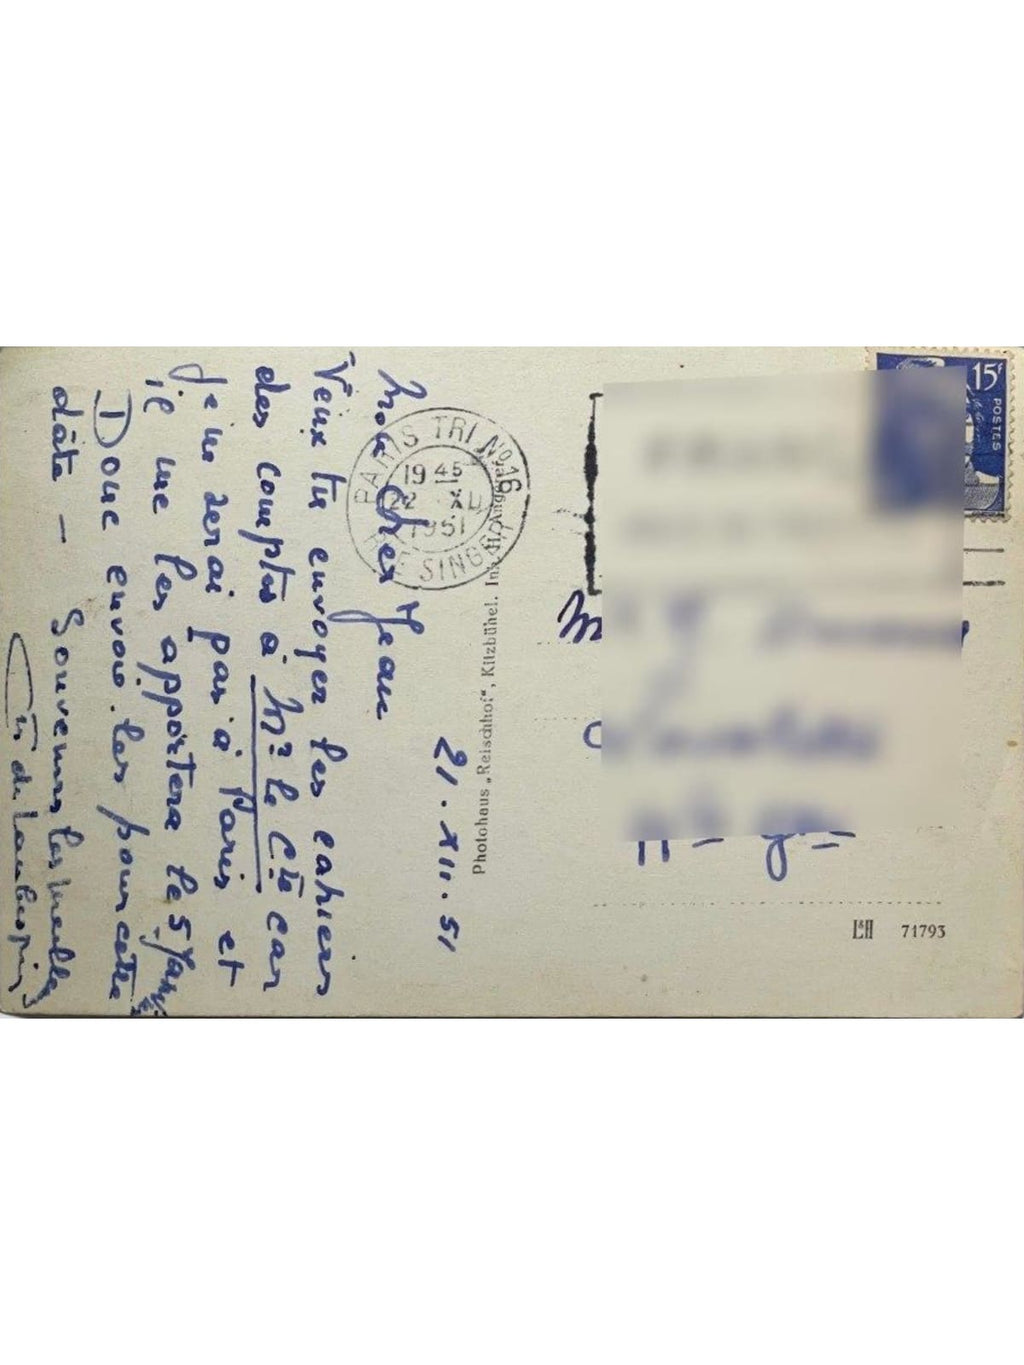 21. XII. 51
Mon cher Jean
Veux tu envoyer les cahiers
des comptes à Mr le Cte car
je ne serai pas à Paris et
il me les apportera le 5 Janv
Donc envoie les pour cette
dâte —
Souvenirs les meilleurs
Cte de
PARIS TRI No 16
19 45
22 XII
1951
RUE SINGER
Photohaus „Reischhof“, Kitzbühel. Inh.
15F
POSTES
M
L&H 71793